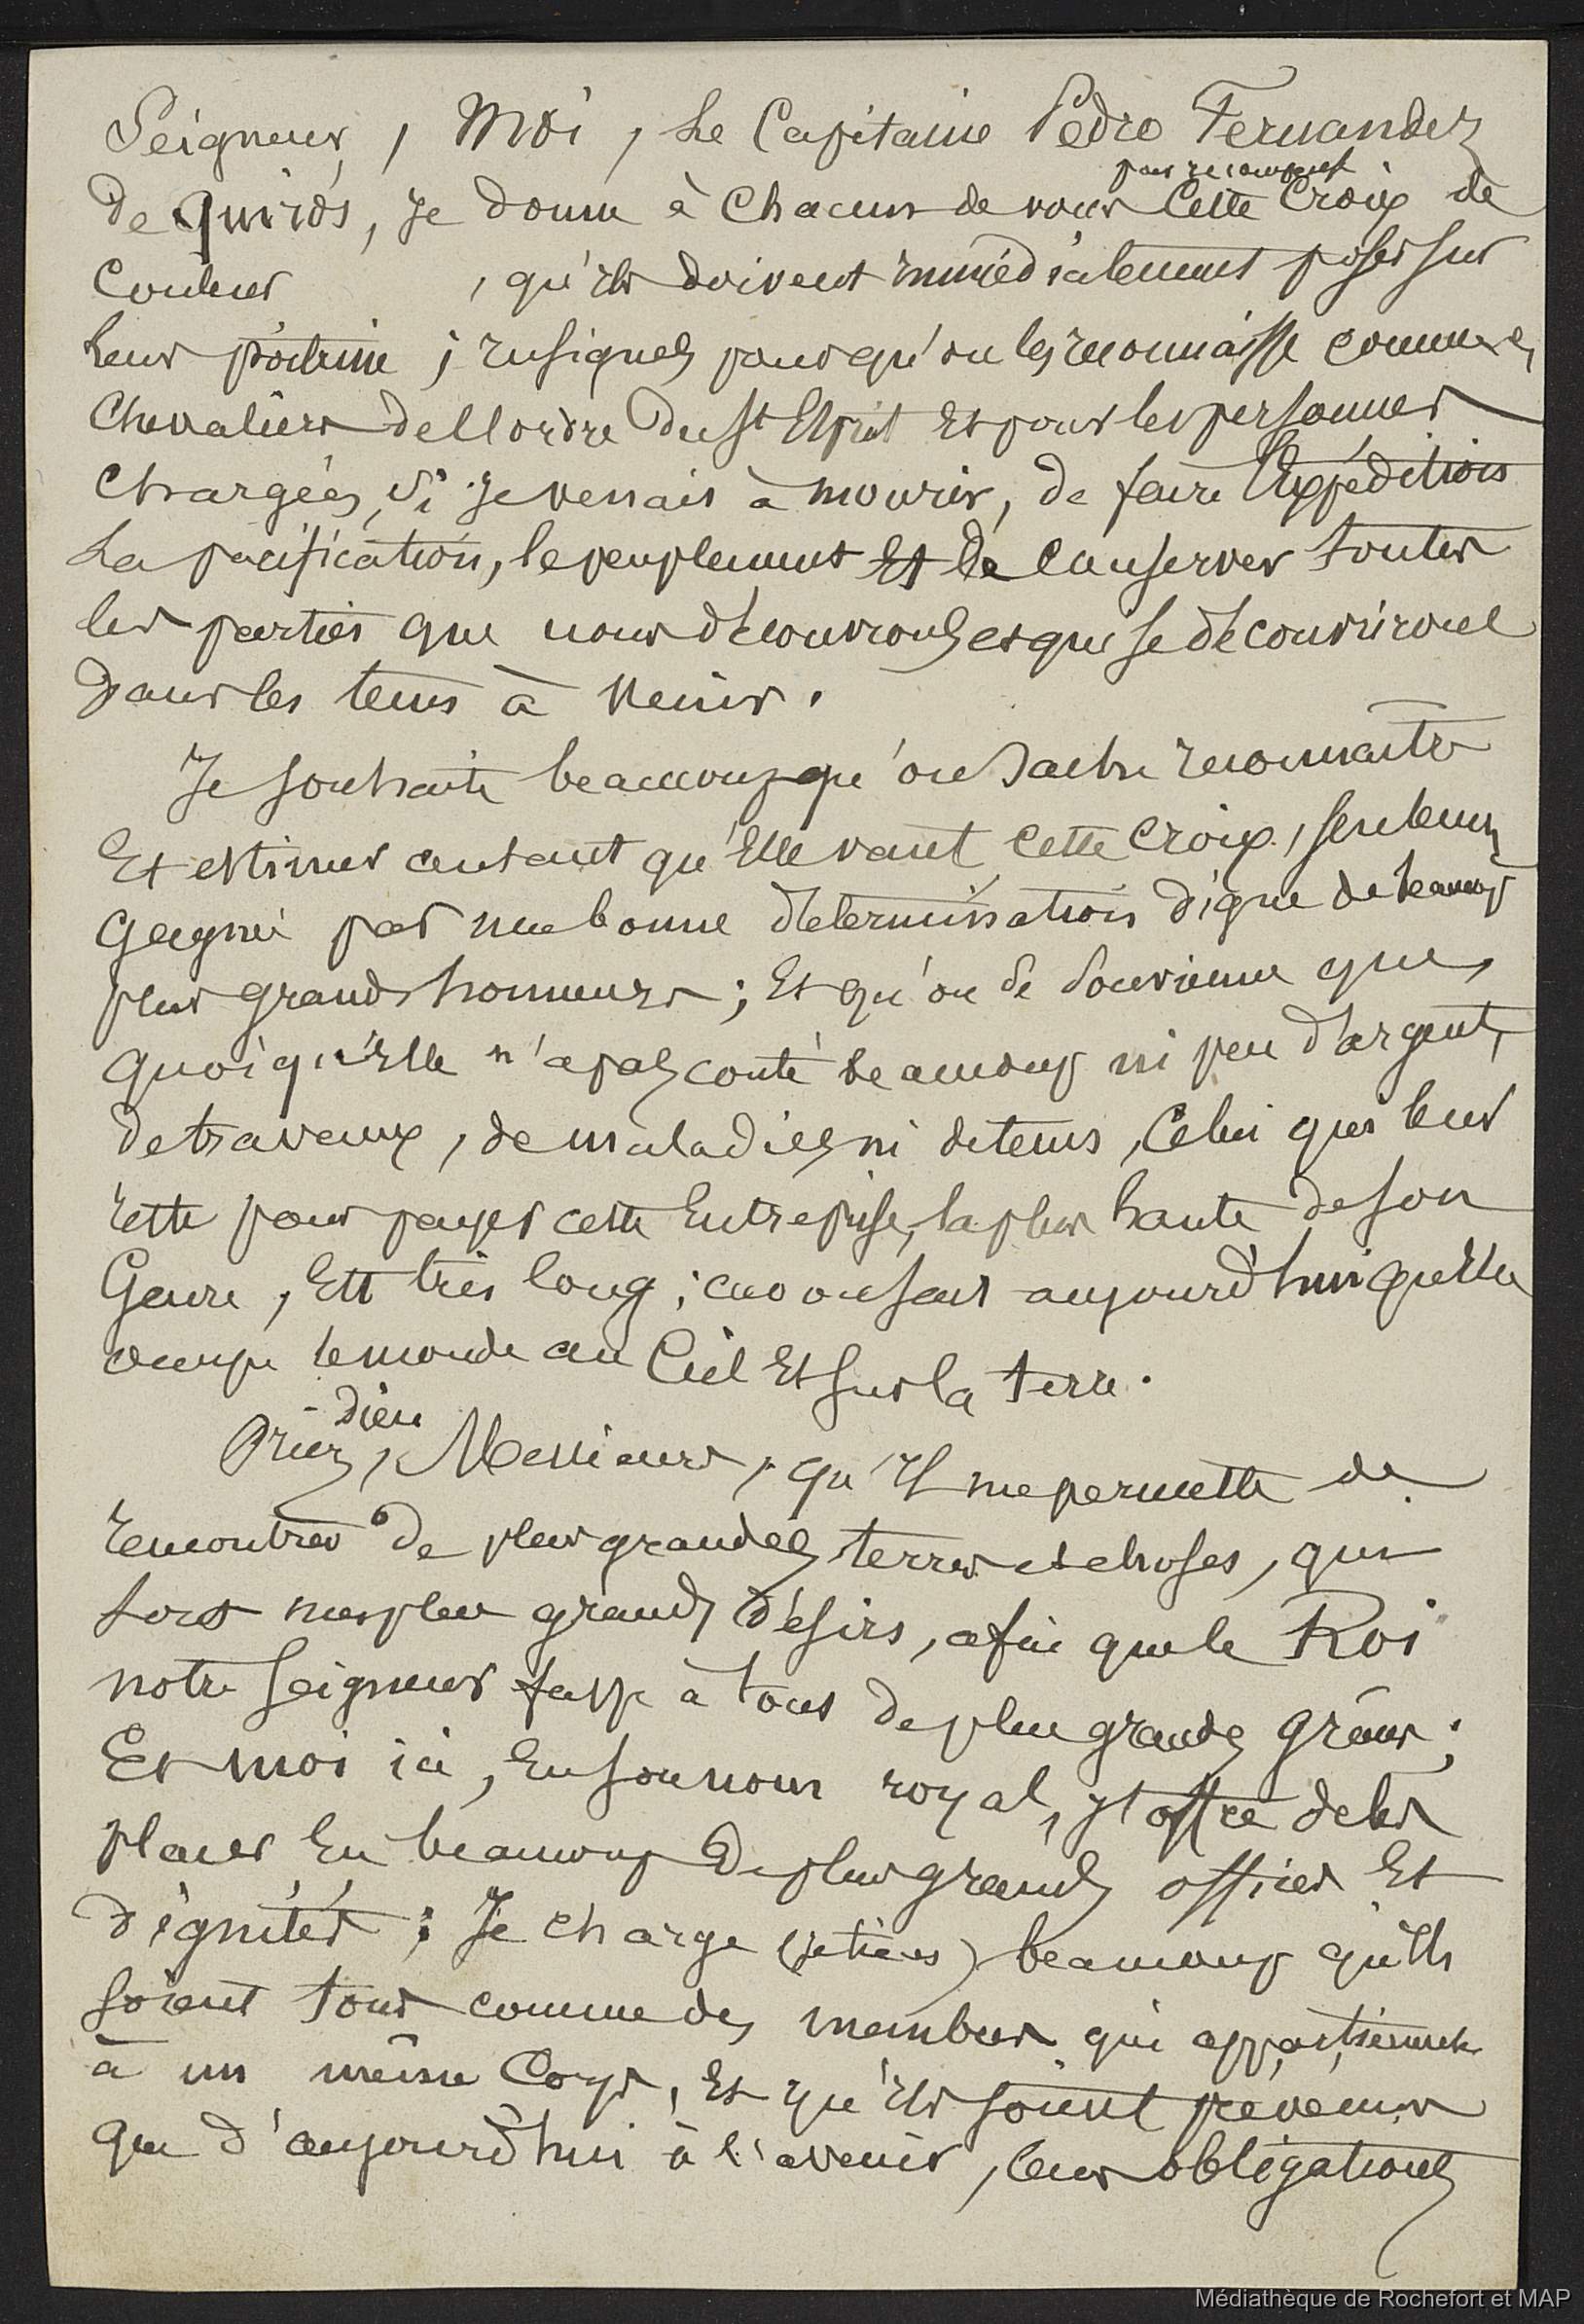 Seigneurs, Moi, Le Capitaine Pedro Fernandez
pour recompense
de Quirós, Je donne à Chacun de vous Cette Croix de
Couleur , qu'ils doivent immédiatement poser sur
leur poitrine ; insignes pour qu'on les reconnaisse comme
Chevaliers de l'ordre du St Esprit Et pour les personnes
Chargées, Si je venais à mourir, de faire l'Expédition
La pacification, le peuplement Et de Conserver toutes
les parties que nous découvrons et qui se découvriront
Dans les tems à Venir.
Je souhaite beaucoup qu'on Sache reconnaître
Et estimer autant qu'Elle vaut cette croix, seulement
gagnée par une bonne détermination digne de beaucoup
plus grands honneurs ; Et qu'on se souvienne que,
quoiqu'Elle n'a pas couté beaucoup ni peu d'argent,
de travaux, de maladies ni de tems, Celui qui leur
reste pour payer cette Entreprise, la plus haute de son
Genre, Est très long ; car on sait aujourd'hui qu'Elle
occupe le monde au Ciel Et sur la terre.
dieu
Priez, Messieurs, qu'Il me permette de
rencontrer de plus grandes terres et choses, qui
sont mes plus grands désirs, afin que le Roi
notre Seigneur fasse à tous de plus grandes grâces ;
Et moi ici, En son nom royal, j'offre de les
placer En beaucoup de plus grands offices Et
dignités ; Je charge beaucoup qu'Ils
soient tous comme des membres qui appartiennent
à un même Corps, Et qu'Ils soient prévenus
que d'aujourd'hui à l'avenir, leurs obligations
Médiathèque de Rochefort et MAP